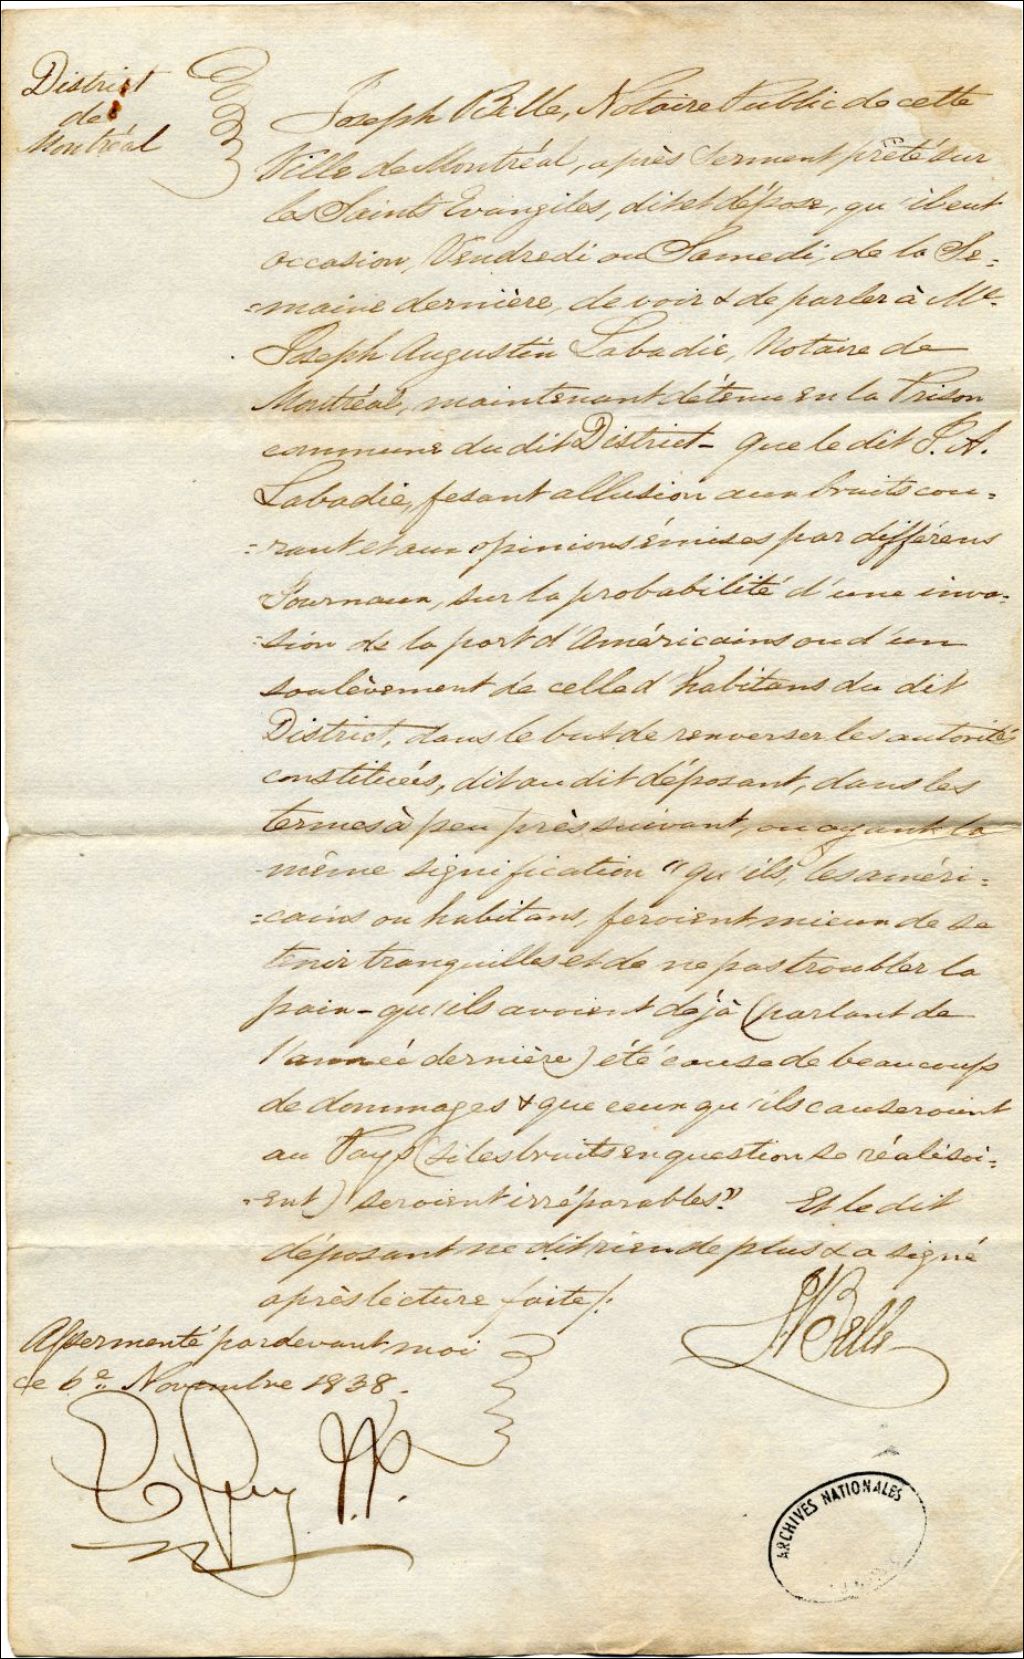 District
de
Montréal
Joseph Belle, Notaire Public de cette
Ville de Montréal, après Serment prêté sur
les Saints Evangiles, dit et dépose, qu'il eut
occasion, Vendredi ou Samedi, de la Se=
=maine dernière, de voir & de parler à Me.
Joseph Augustin Labadie, Notaire de
Montréal, maintenant détenu en la Prison
commune du dit District - que le dit J. A.
Labadie, fesant allusion aux bruits cou=
=rant et aux opinions émises par différens
Journaux, sur la probabilité d'une inva=
=sion de la part d'Américains ou d'un
soulèvement de celle d'habitans du dit
District, dans le but de renverser les autorités
constituées, dit au dit déposant, dans les
termes à peu près suivant, ou ayant la
même signification "qu'ils, les améri=
=cains ou habitans, feroient mieux de se
tenir tranquilles et de ne pas troubler la
paix - qu'ils avoient déjà (parlant de
l'année dernière) été cause de beaucoup
de dommages & que ceux qu'ils causeroient
au Pays (si les bruits en question se réalisoi=
=ent) seroient irréparables." Et le dit
déposant ne dit rien de plus & a signé
après lecture faite /.
J Belle
Assermenté pardevant moi
ce 6e. Novembre 1838.
Guy J.P.
ARCHIVES NATIONALES